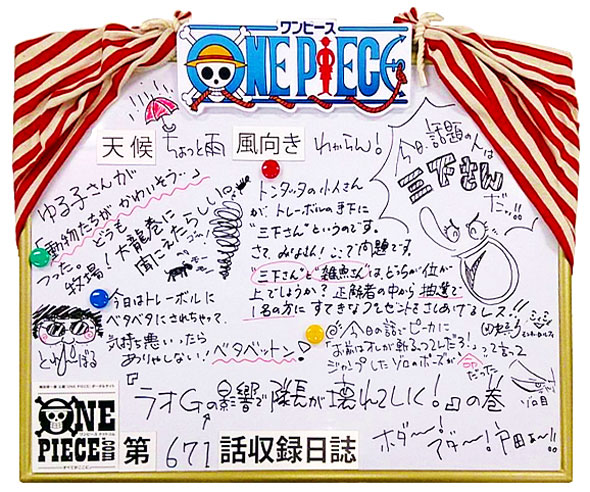 ワンピース
ONE PIECE
天候 ちょっと雨 風向き わからん!
今日、話題の人は
三下さん
だッ!!
ゆる子さんが
「動物たちが かわいそう…」
つった。どうも
牧場!大龍巻に
聞こえたらしい。
トンタッタの小人さん
が、トレーボルの手下に
"三下さん"というのです。
さて、みなさん!ここで問題です。
"三下さん"と"雑魚さん"は、どちらが位が
上でしょうか?正解者の中から抽選で
1名の方に すてきなプレゼントをさしあげるレス!!
今日はトレーボルに
ベタベタにされちゃって、
気持ち悪いったら
ありゃしない!ベタベットン
とれーぼる
今日の話でピカに
「お前はオレが斬るっつってんだろ!」って言って
ジャンプしたゾロのポーズが
命だった
ゾロ目
『ラオGの影響で隊長が壊れてしく!』の巻
ONE
PIECE
.com
第671話収録日誌
ホダ〜! マダ〜! 戸田ぁ〜!!